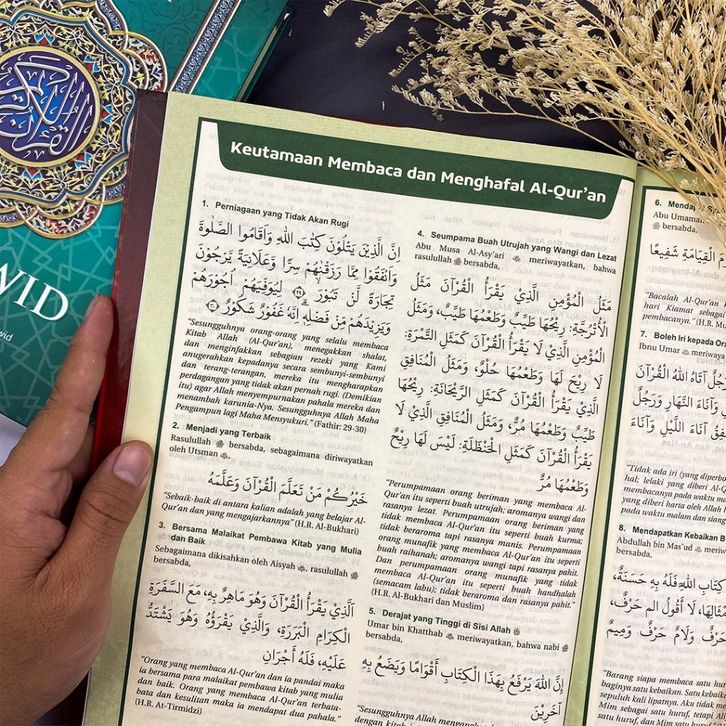 القرآن الكريم
WID
wid
Keutamaan Membaca dan Menghafal Al-Qur'an
1. Perniagaan yang Tidak Akan Rugi
اِنَّ الَّذِيْنَ يَتْلُوْنَ كِتٰبَ اللّٰهِ وَاَقَامُوا الصَّلٰوةَ
وَاَنْفَقُوْا مِمَّا رَزَقْنٰهُمْ سِرًّا وَّعَلَانِيَةً يَّرْجُوْنَ
تِجَارَةً لَّنْ تَبُوْرَۙ ٢٩ لِيُوَفِّيَهُمْ اُجُوْرَهُمْ
وَيَزِيْدَهُمْ مِّنْ فَضْلِهٖۗ اِنَّهٗ غَفُوْرٌ شَكُوْرٌ ٣٠
"Sesungguhnya orang-orang yang selalu membaca
Kitab Allah (Al-Qur'an), menegakkan shalat,
dan menginfakkan sebagian rezeki yang Kami
anugerahkan kepadanya secara sembunyi-sembunyi
dan terang-terangan, mereka itu mengharapkan
perdagangan yang tidak akan pernah rugi. (Demikian
itu) agar Allah menyempurnakan pahala mereka dan
menambah karunia-Nya. Sesungguhnya Allah Maha
Pengampun lagi Maha Mensyukuri." (Fathir: 29-30)
2. Menjadi yang Terbaik
Rasulullah ﷺ bersabda, sebagaimana diriwayatkan
oleh Utsman
خَيْرُكُمْ مَنْ تَعَلَّمَ الْقُرْآنَ وَعَلَّمَهُ
"Sebaik-baik di antara kalian adalah yang belajar Al-
Qur'an dan yang mengajarkannya" (H.R. Al-Bukhari)
3. Bersama Malaikat Pembawa Kitab yang Mulia
dan Baik
Sebagaimana dikisahkan oleh Aisyah, rasulullah ﷺ
bersabda,
اَلَّذِيْ يَقْرَأُ الْقُرْآنَ وَهُوَ مَاهِرٌ بِهِ، مَعَ السَّفَرَةِ
الْكِرَامِ الْبَرَرَةِ، وَالَّذِيْ يَقْرَؤُهُ وَهُوَ يَشْتَدُّ
عَلَيْهِ، فَلَهُ أَجْرَانِ
"Orang yang membaca Al-Qur'an dan ia pandai maka
ia bersama para malaikat pembawa kitab yang mulia
dan baik. Orang yang membaca Al-Qur'an terbata-
bata dan kesulitan maka ia mendapat dua pahala."
(H.R. At-Tirmidzi)
4. Seumpama Buah Utrujah yang Wangi dan Lezat
Abu Musa Al-Asy'ari meriwayatkan, bahwa
rasulullah ﷺ bersabda,
مَثَلُ الْمُؤْمِنِ الَّذِيْ يَقْرَأُ الْقُرْآنَ مَثَلُ
الْأُتْرُجَّةِ: رِيْحُهَا طَيِّبٌ وَطَعْمُهَا طَيِّبٌ، وَمَثَلُ
الْمُؤْمِنِ الَّذِيْ لَا يَقْرَأُ الْقُرْآنَ كَمَثَلِ التَّمْرَةِ:
لَا رِيْحَ لَهَا وَطَعْمُهَا حُلْوٌ، وَمَثَلُ الْمُنَافِقِ
الَّذِيْ يَقْرَأُ الْقُرْآنَ كَمَثَلِ الرَّيْحَانَةِ: رِيْحُهَا
طَيِّبٌ وَطَعْمُهَا مُرٌّ، وَمَثَلُ الْمُنَافِقِ الَّذِيْ لَا
يَقْرَأُ الْقُرْآنَ كَمَثَلِ الْحَنْظَلَةِ: لَيْسَ لَهَا رِيْحٌ
وَطَعْمُهَا مُرٌّ
"Perumpamaan orang beriman yang membaca Al-
Qur'an itu seperti buah utrujah; aromanya wangi dan
rasanya lezat. Perumpamaan orang beriman yang
tidak membaca Al-Qur'an itu seperti buah kurma;
tidak beraroma tapi rasanya manis. Perumpamaan
orang munafik yang membaca Al-Qur'an itu seperti
buah raihanah; aromanya wangi tapi rasanya pahit.
Dan perumpamaan orang munafik yang tidak
membaca Al-Qur'an itu seperti buah handhalah
(semacam labu); tidak beraroma dan rasanya pahit."
(H.R. Al-Bukhari dan Muslim)
5. Derajat yang Tinggi di Sisi Allah
Umar bin Khatthab meriwayatkan, bahwa nabi ﷺ
bersabda,
إِنَّ اللّٰهَ يَرْفَعُ بِهٰذَا الْكِتَابِ أَقْوَامًا وَيَضَعُ بِهِ
آخَرِيْنَ
"Sesungguhnya Allah mengangkat
dengan kitab
6. Mendap
Abu Umama
ﷺ bersabda,
الْقِيَامَةِ شَفِيْعًا
"Bacalah Al-Qur'an
hari Kiamat sebagai
pembacanya." (H.R. M
7. Boleh Iri kepada Ora
Ibnu Umar meriwaya
رَجُلٌ آتَاهُ اللّٰهُ الْقُرْآنَ
النَّهَارِ وَرَجُلٌ
اللَّيْلِ وَآنَاءَ
"Tidak ada iri (yang diperbo
hal; lelaki yang diberi Al-Q
membacanya pada waktu ma
yang diberi harta oleh Allah
pada waktu malam dan sian
8. Mendapatkan Kebaikan B
Abdullah bin Mas'ud mer
bersabda,
كِتَابِ اللّٰهِ فَلَهُ بِهِ حَسَنَةٌ،
لَا أَقُوْلُ الم حَرْفٌ،
حَرْفٌ وَلَامٌ حَرْفٌ وَمِيْمٌ
"Barang siapa membaca satu hur
baginya satu kebaikan. Satu kebaik
sepuluh kali lipatnya. Aku tidak
Mim sebagai satu huruf, tetapi
satu huruf, dan Mim satu huruf